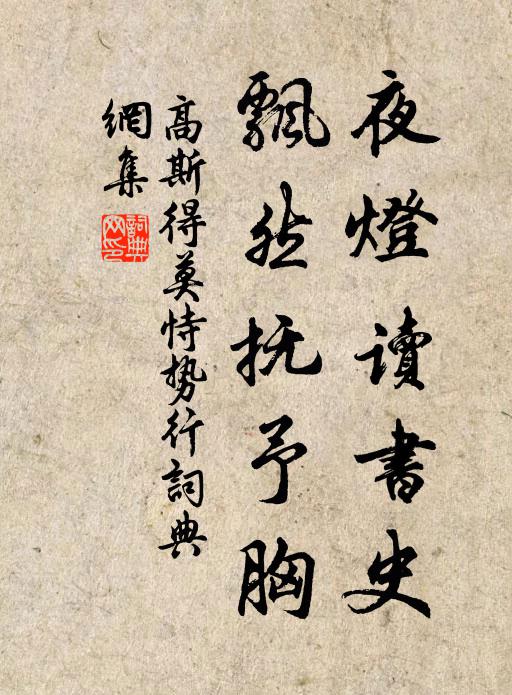 夜燈讀書史
飄然抚予胸
高斯得莫恃势行詞典
網集
詞典網印